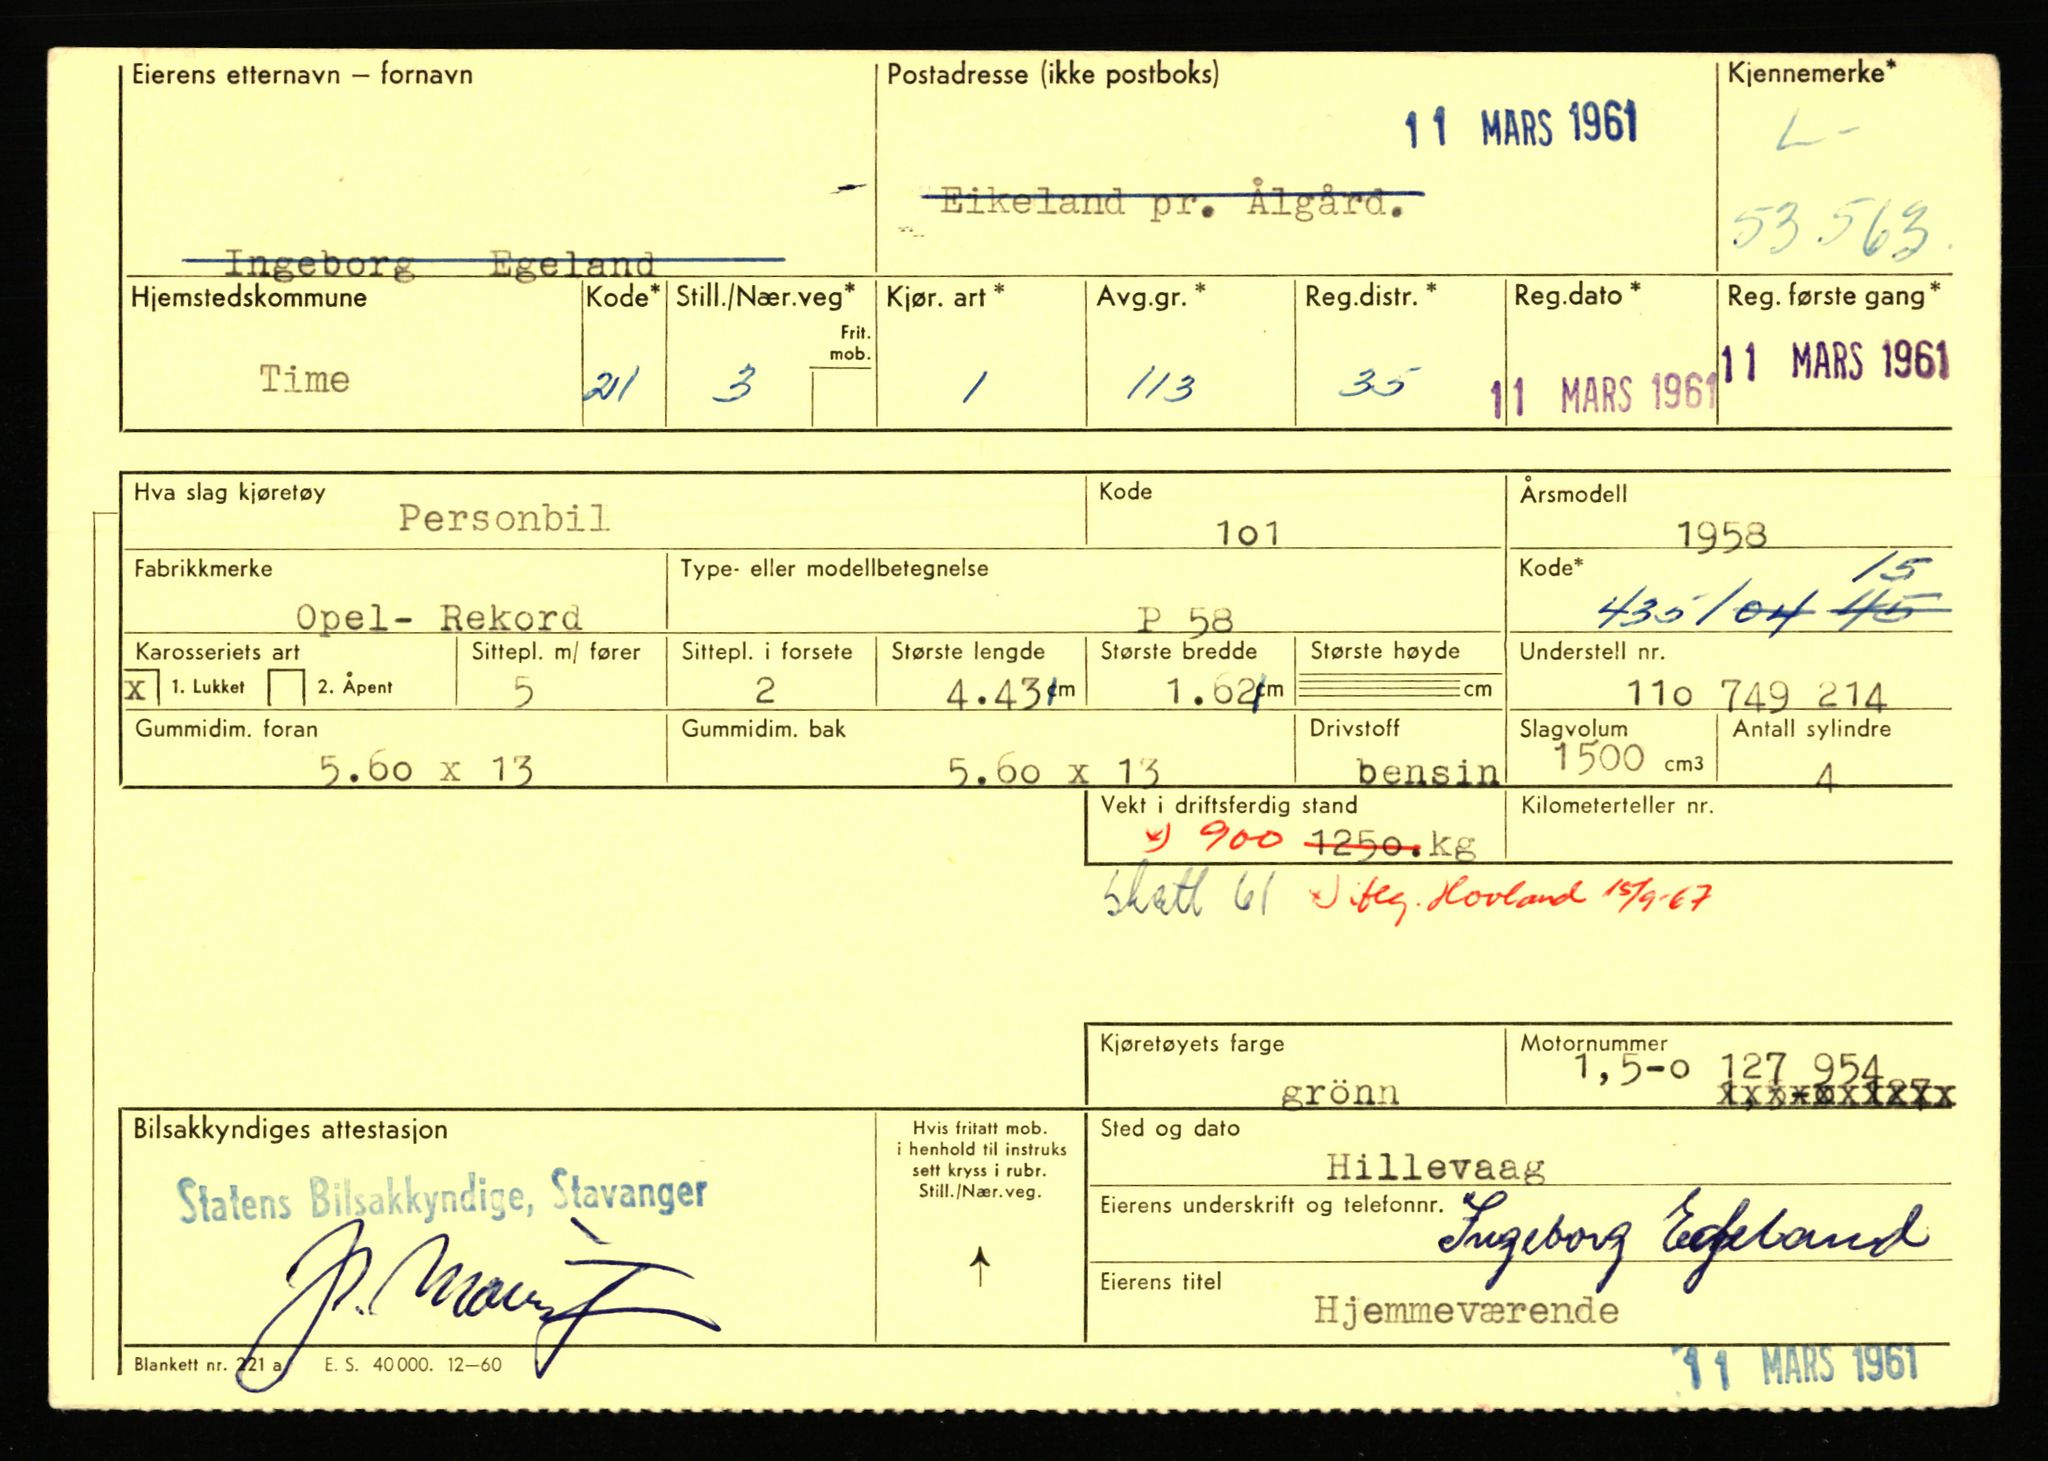 Eierens etternavn – fornavn
Postadresse (ikke postboks)
Kjennemerke*
11 MARS 1961
L-
Eikeland pr. Ålgård.
53.563.
Ingeborg Egeland
Hjemstedskommune
Kode*
Still./Nær.veg*
Frit. mob.
Kjør. art *
Avg.gr. *
Reg.distr. *
Reg.dato *
Reg. første gang*
Time
21
3
1
113
35
11 MARS 1961
11 MARS 1961
Hva slag kjøretøy
Personbil
Kode
101
Årsmodell
1958
Fabrikkmerke
Opel- Rekord
Type- eller modellbetegnelse
P 58
Kode*
15
435/04 45
Karosseriets art
x 1. Lukket 2. Åpent
Sittepl. m/ fører
5
Sittepl. i forsete
2
Største lengde
4.43 cm
Største bredde
1.62 cm
Største høyde
cm
Understell nr.
11o 749 214
Gummidim. foran
5.6o x 13
Gummidim. bak
5.6o x 13
Drivstoff
bensin
Slagvolum
1500 cm3
Antall sylindre
4
Vekt i driftsferdig stand
x) 900 125o.kg
Kilometerteller nr.
skatt 61
x) iflg. Hovland 15/9-67
Kjøretøyets farge
grönn
Motornummer
1,5-o 127 954
Bilsakkyndiges attestasjon
Statens Bilsakkyndige, Stavanger
Hvis fritatt mob.
i henhold til instruks
sett kryss i rubr.
Still./Nær.veg.
Sted og dato
Hillevaag
Eierens underskrift og telefonnr.
Ingeborg Egeland
Eierens titel
Hjemmeværende
Blankett nr. 221 a E. S. 40 000. 12–60
11 MARS 1961